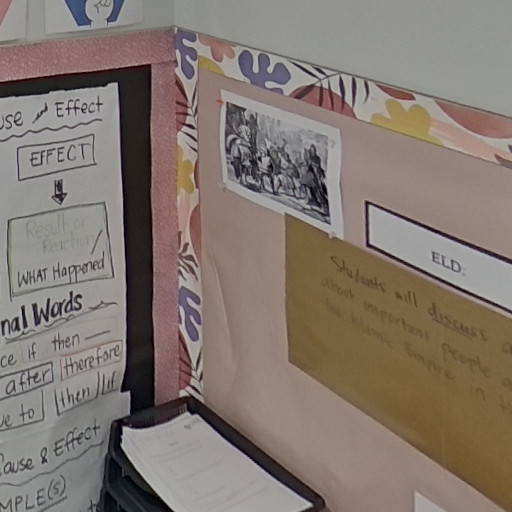 use and Effect
EFFECT
Result or
Reaction/
WHAT Happened
nal Words
ce if then
after therefore
ue to then if
Cause & Effect
MPLE(S)
ELD:
Students will discuss
about important people
the Islamic Empire in